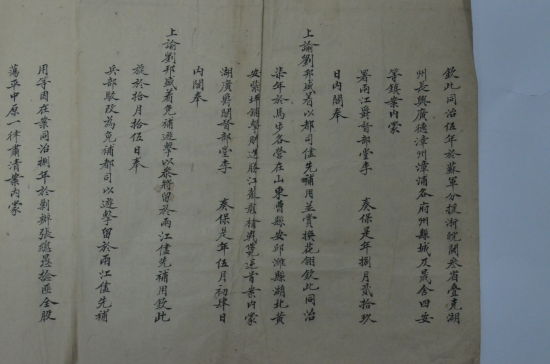 欽此同治伍年於蘇軍分援浙皖閩叁省疊克湖
州長興廣德漳州漳浦各府州縣城及晟舍四安
等鎮案內蒙
署兩江爵督部堂李 奏保是年捌月貳拾玖
日內閣奉
上諭劉邦盛着以都司儘先補用並賞換花翎欽此同治
柒年於馬步各營在山東曹縣安邱濰縣湖北黃
安紫坪鋪擊剿逆勝江
湖廣爵閣督部堂李 奏保是年伍月初肆日
內閣奉
上諭劉邦盛着免補遊擊以叅將留於兩江儘先補用欽此
旋於拾月拾伍日奉
兵部駮改為免補都司以遊擊留於兩江儘先補
用等因在案同治捌年於剿辦張總愚捻匪全股
蕩平中原一律肅清案內蒙